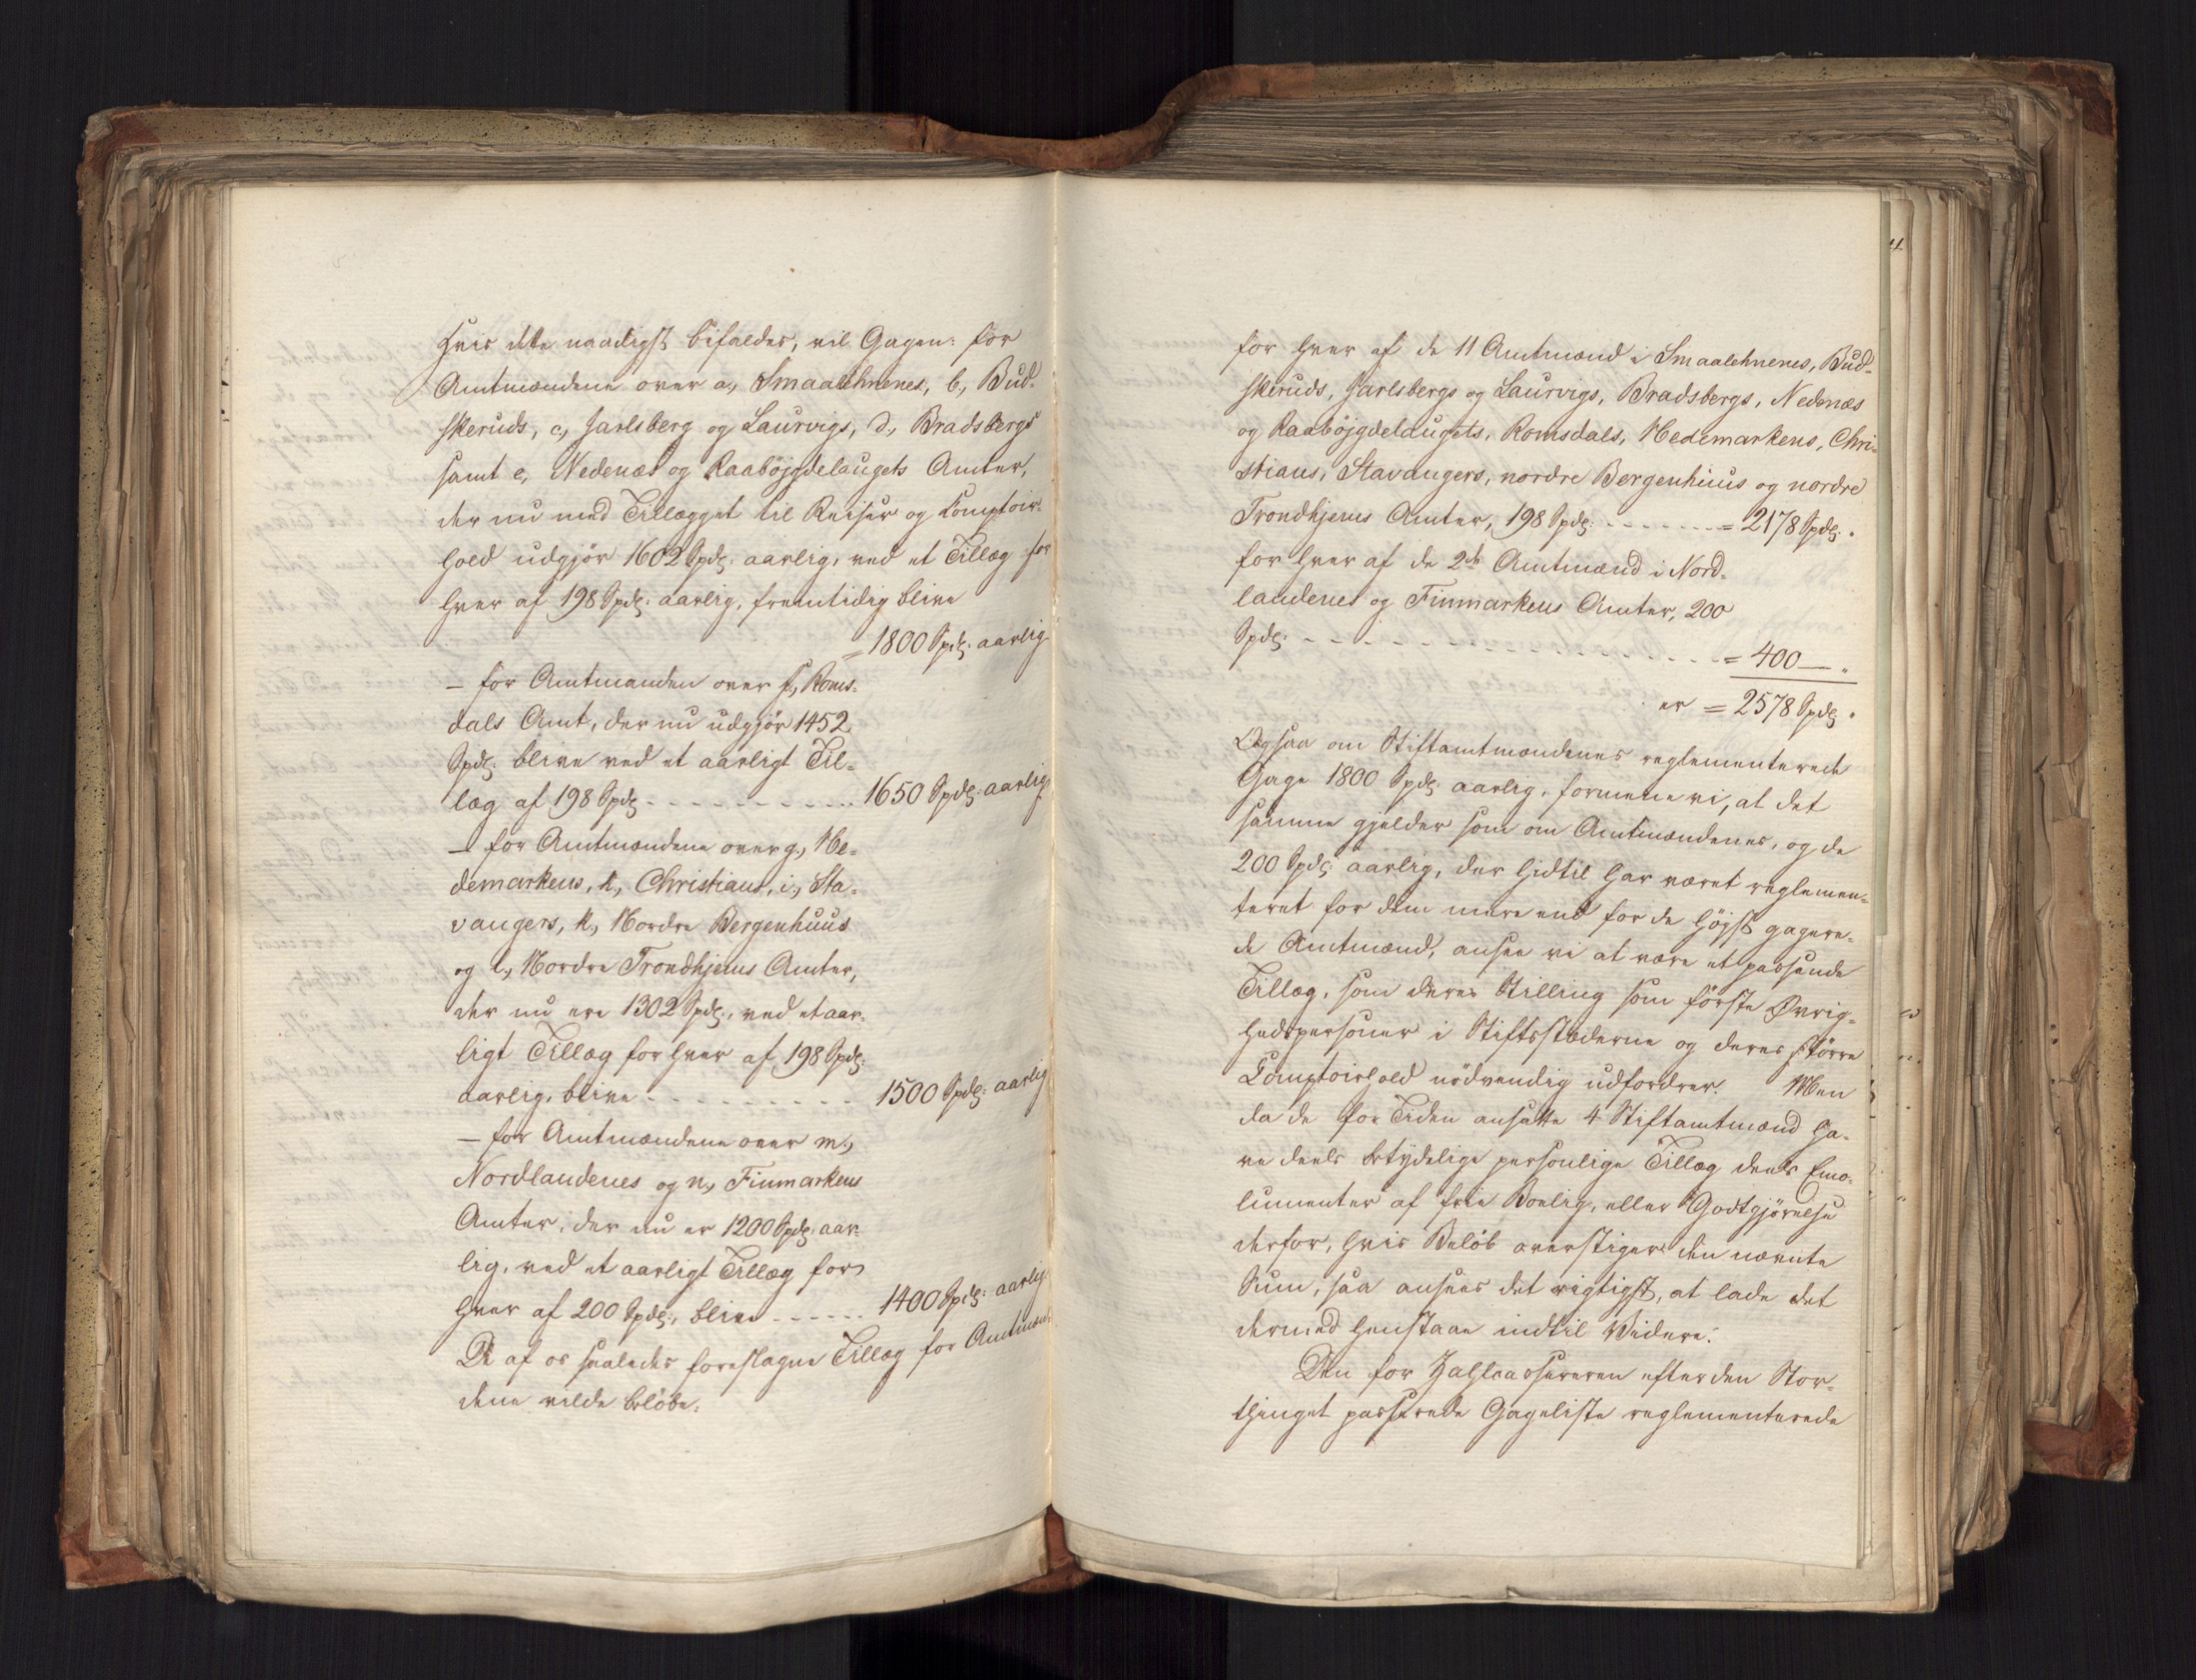 Hvis dette naadigst bifaldes, vil Gagen: for
Amtmændene over a, Smaalehnenes, b, Bud-
skeruds, c, Jarlsberg og Laurvigs, d, Bradsbergs
samt e, Nedenæs og Raabøjgdelaugets Amter,
der nu med Tillægget til Reiser og Comptoir-
hold udgjør 1602 Spdlr. aarlig, ved et Tillæg for
hver af 198 Spdlr. aarlig, fremtidig blive
= 1800 Spdlr. aarlig
- for Amtmanden over f, Roms-
dals Amt, der nu udgjør 1452
Spdlr. blive ved et aarligt Til-
læg af 198 Spdlr - - - - - - - - 1650 Spdlr. aarlig
- for Amtmændene over g, He-
demarkens, h, Christians, i, Sta-
vangers, k, Nordre Bergenhuus
og l, Nordre Trondhjems Amter,
der nu ere 1302 Spdlr., ved et aar-
ligt Tillæg for hver af 198 Spdlr.
aarlig, blive - - - - - - - - 1500 Spdlr. aarlig
- for Amtmændene over m,
Nordlandenes og n, Finmarkens
Amter, der nu er 1200 Spdlr. aar-
lig, ved et aarligt Tillæg for
hver af 200 Spdlr., blive - - - - - 1400 Spdlr. aarlig
De af os saaledes foreslagne Tillæg for Amtmæn-
dene vilde beløbe:
for hver af de 11 Amtmænd i Smaalehnenes, Bud-
skeruds, Jarlsbergs og Laurvigs, Bradsbergs, Nedenæs
og Raabøjgdelaugets, Romsdals, Hedemarkens, Chri-
stians, Stavangers, nordre Bergenhuus og nordre
Trondhjems Amter, 198 Spdlr. - - - - - - - = 2178 Spdlr.
for hver af de 2de Amtmænd i Nord-
landenes og Finmarkens Amter, 200
Spdlr. - - - - - - - - - - - - - - = 400 — "
er = 2578 Spdlr.
Ogsaa om Stiftamtmændenes reglementerede
Gage 1800 Spdlr. aarlig, formene vi, at det
samme gjelder som om Amtmændenes, og de
200 Spdlr. aarlig, der hidtil har været reglemen-
teret for dem mere end for de højst gagere-
de Amtmænd, ansee vi at være et passende
Tillæg, som deres Stilling som første Øvrig-
hedspersoner i Stiftsstæderne og deres større
Comptoirhold nødvendig udfordrer. Men
da de for Tiden ansatte 4 Stiftamtmænd ha-
ve deels betydelige personlige Tillæg deels Emo-
lumenter af frie Boelig, eller Godtgjørelse
derfor, hvis Beløb overstiger den nævnte
Sum, saa ansees det rigtigst, at lade det
dermed henstaae indtil Videre.
Den for Zahlcassereren efter den Stor-
thinget passerede Gageliste reglementerede